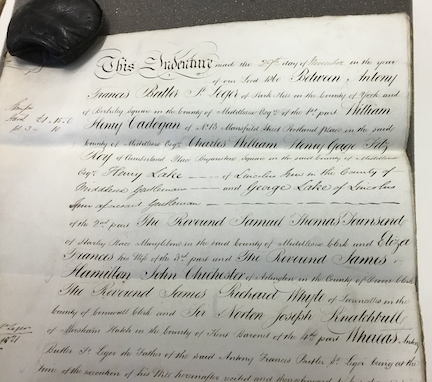 This Indenture made the day of November in the year
of our Lord 1860 Between Antony
Francis Butler St Leger of Park Hill in the County of York and
of Berkeley Square in the County of Middlesex Esqre of the 1st part William
Henry Cadogan of No 13 Mansfield Street Portland place in the said
County of Middlesex Esqre Charles William Henry Gage Fitz
Roy of Cumberland Place Bryanstone Square in the said County of Middlesex
Esqre Henry Lake of Lincolns Inn in the County of
Middlesex Gentleman and George Lake of Lincolns
Inn aforesaid Gentleman
of the 2nd part The Reverend Samuel Thomas Townsend
of Place Marylebone in the said County of Middlesex Clerk and Eliza
Frances his Wife of the 3rd part and The Reverend James
Hamilton John Chichester of Arlington in the County of Devon Clerk
The Reverend James Richard Whyte of Launcells in the
County of Cornwall Clerk and Sir Norton Joseph Knatchbull
of Mersham Hatch in the County of Kent Baronet of the 4th part Whereas Antony
Butler St Leger the Father of the said Antony Francis Butler St Leger being at the
time of the execution of his Will hereinafter recited and